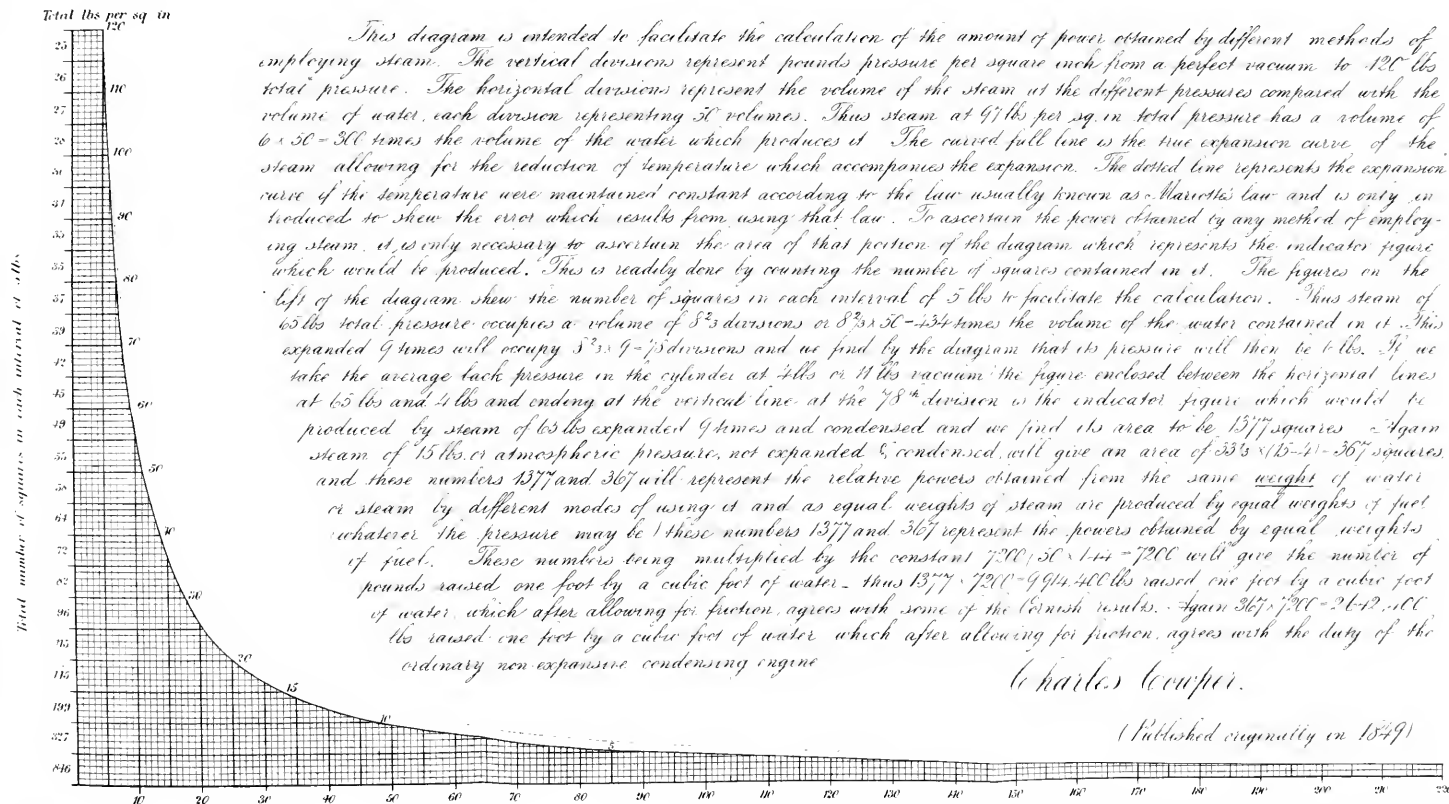 Total lbs per sq in
This diagram is intended to facilitate the calculation of the amount of power obtained by different methods of
employing steam. The vertical divisions represent pounds pressure per square inch from a perfect vacuum to 120 lbs
total pressure. The horizontal divisions represent the volume of the steam at the different pressures compared with the
volume of water, each division representing 50 volumes. Thus steam at 97 lbs per sq. in total pressure has a volume of
6 × 50 = 300 times the volume of the water which produces it The curved full line is the true expansion curve of the
steam allowing for the reduction of temperature which accompanies the expansion. The dotted line represents the expansion
curve if the temperature were maintained constant according to the law usually known as Mariotte's law and is only in
troduced to shew the error which results from using that law. To ascertain the power obtained by any method of employ-
ing steam, it is only necessary to ascertain the area of that portion of the diagram which represents the indicator figure
which would be produced. This is readily done by counting the number of squares contained in it. The figures on the
left of the diagram shew the number of squares in each interval of 5 lbs to facilitate the calculation. Thus steam of
65 lbs total pressure occupies a volume of 8⅔ divisions or 8⅔ × 50 = 434 times the volume of the water contained in it This
expanded 9 times will occupy 8⅔ × 9 = 78 divisions and we find by the diagram that its pressure will then be 6 lbs. If we
take the average back pressure in the cylinder at 4 lbs or 11 lbs vacuum the figure enclosed between the horizontal lines
at 65 lbs and 4 lbs and ending at the vertical line at the 78th division is the indicator figure which would be
produced by steam of 65 lbs expanded 9 times and condensed and we find its area to be 1377 squares Again
steam of 15 lbs. or atmospheric pressure, not expanded & condensed, will give an area of 33⅓ × (15-4) = 367 squares
and these numbers 1377 and 367 will represent the relative powers obtained from the same weight of water
or steam by different modes of using it and as equal weights of steam are produced by equal weights of fuel
whatever the pressure may be) these numbers 1377 and 367 represent the powers obtained by equal weights
of fuel. These numbers being multiplied by the constant 7200 (50 × 144 = 7200 will give the number of
pounds raised one foot by a cubic foot of water - thus 1377 × 7200 = 9.914.400 lbs raised one foot by a cubic foot
of water, which after allowing for friction, agrees with some of the Cornish results. Again 367 × 7200 = 2642.400
lbs raised one foot by a cubic foot of water which after allowing for friction, agrees with the duty of the
ordinary non-expansive condensing engine
Charles Cowper.
(Published originally in 1849)
Total number of squares in each interval of 5 lbs
120
110
100
90
80
70
60
50
40
30
20
15
10
5
25
26
27
28
31
33
35
37
39
42
45
49
53
58
64
72
82
96
115
199
327
846
10 20 30 40 50 60 70 80 90 100 110 120 130 140 150 160 170 180 190 200 210 220